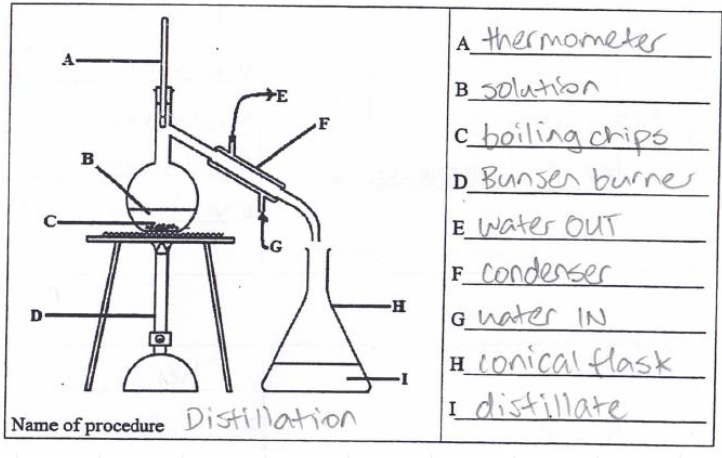 A
E
F
B
C
G
D
H
I
Name of procedure Distillation
A thermometer
B solution
C boiling chips
D Bunsen burner
E water OUT
F condenser
G water IN
H conical flask
I distillate